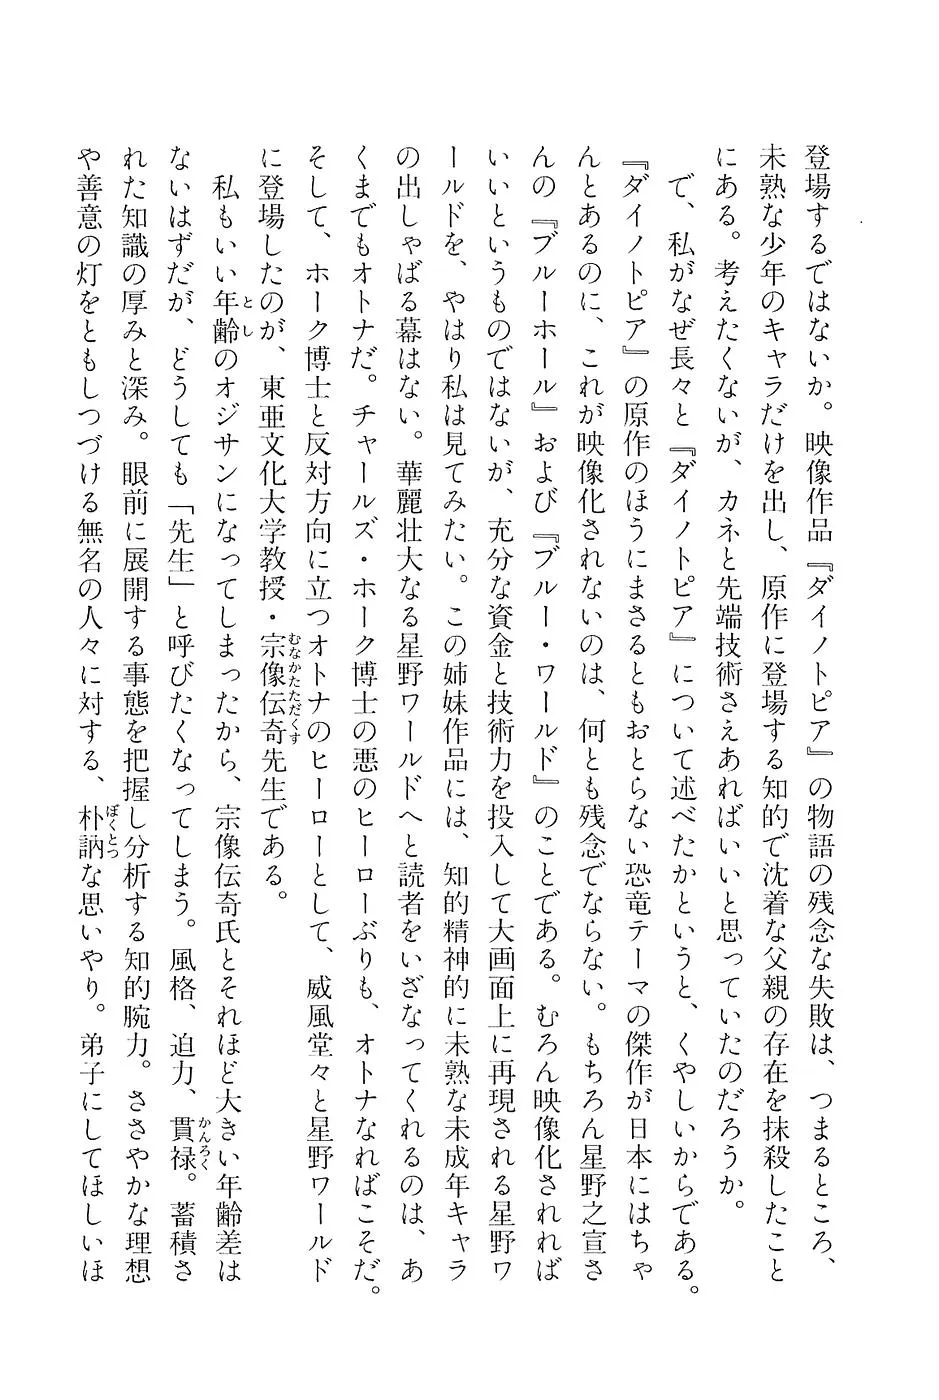 登場するではないか。映像作品『ダイノトピア』の物語の残念な失敗は、つまるところ、
未熟な少年のキャラだけを出し、原作に登場する知的で沈着な父親の存在を抹殺したこと
にある。考えたくないが、カネと先端技術さえあればいいと思っていたのだろうか。
で、私がなぜ長々と『ダイノトピア』について述べたかというと、くやしいからである。
『ダイノトピア』の原作のほうにまさるともおとらない恐竜テーマの傑作が日本にはちゃ
んとあるのに、これが映像化されないのは、何とも残念でならない。もちろん星野之宣さ
んの『ブルーホール』および『ブルー・ワールド』のことである。むろん映像化されれば
いいというものではないが、充分な資金と技術力を投入して大画面上に再現される星野ワ
ールドを、やはり私は見てみたい。この姉妹作品には、知的精神的に未熟な未成年キャラ
の出しゃばる幕はない。華麗壮大なる星野ワールドへと読者をいざなってくれるのは、あ
くまでもオトナだ。チャールズ・ホーク博士の悪のヒーローぶりも、オトナなればこそだ。
そして、ホーク博士と反対方向に立つオトナのヒーローとして、威風堂々と星野ワールド
に登場したのが、東亜文化大学教授・宗像伝奇先生である。
私もいい年齢のオジサンになってしまったから、宗像伝奇氏とそれほど大きい年齢差は
ないはずだが、どうしても「先生」と呼びたくなってしまう。風格、迫力、貫禄。蓄積さ
れた知識の厚みと深み。眼前に展開する事態を把握し分析する知的腕力。ささやかな理想
や善意の灯をともしつづける無名の人々に対する、朴訥な思いやり。弟子にしてほしいほ